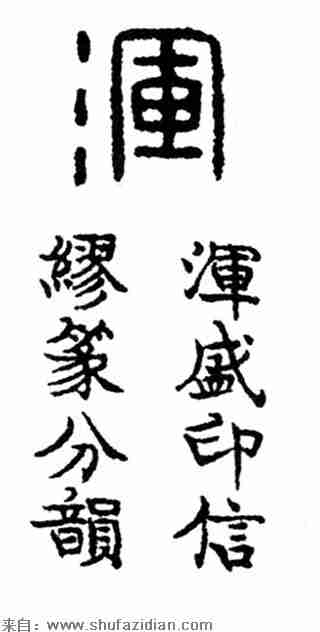 渾
渾盛印信
繆篆分韻
来自：www.shufazidian.com